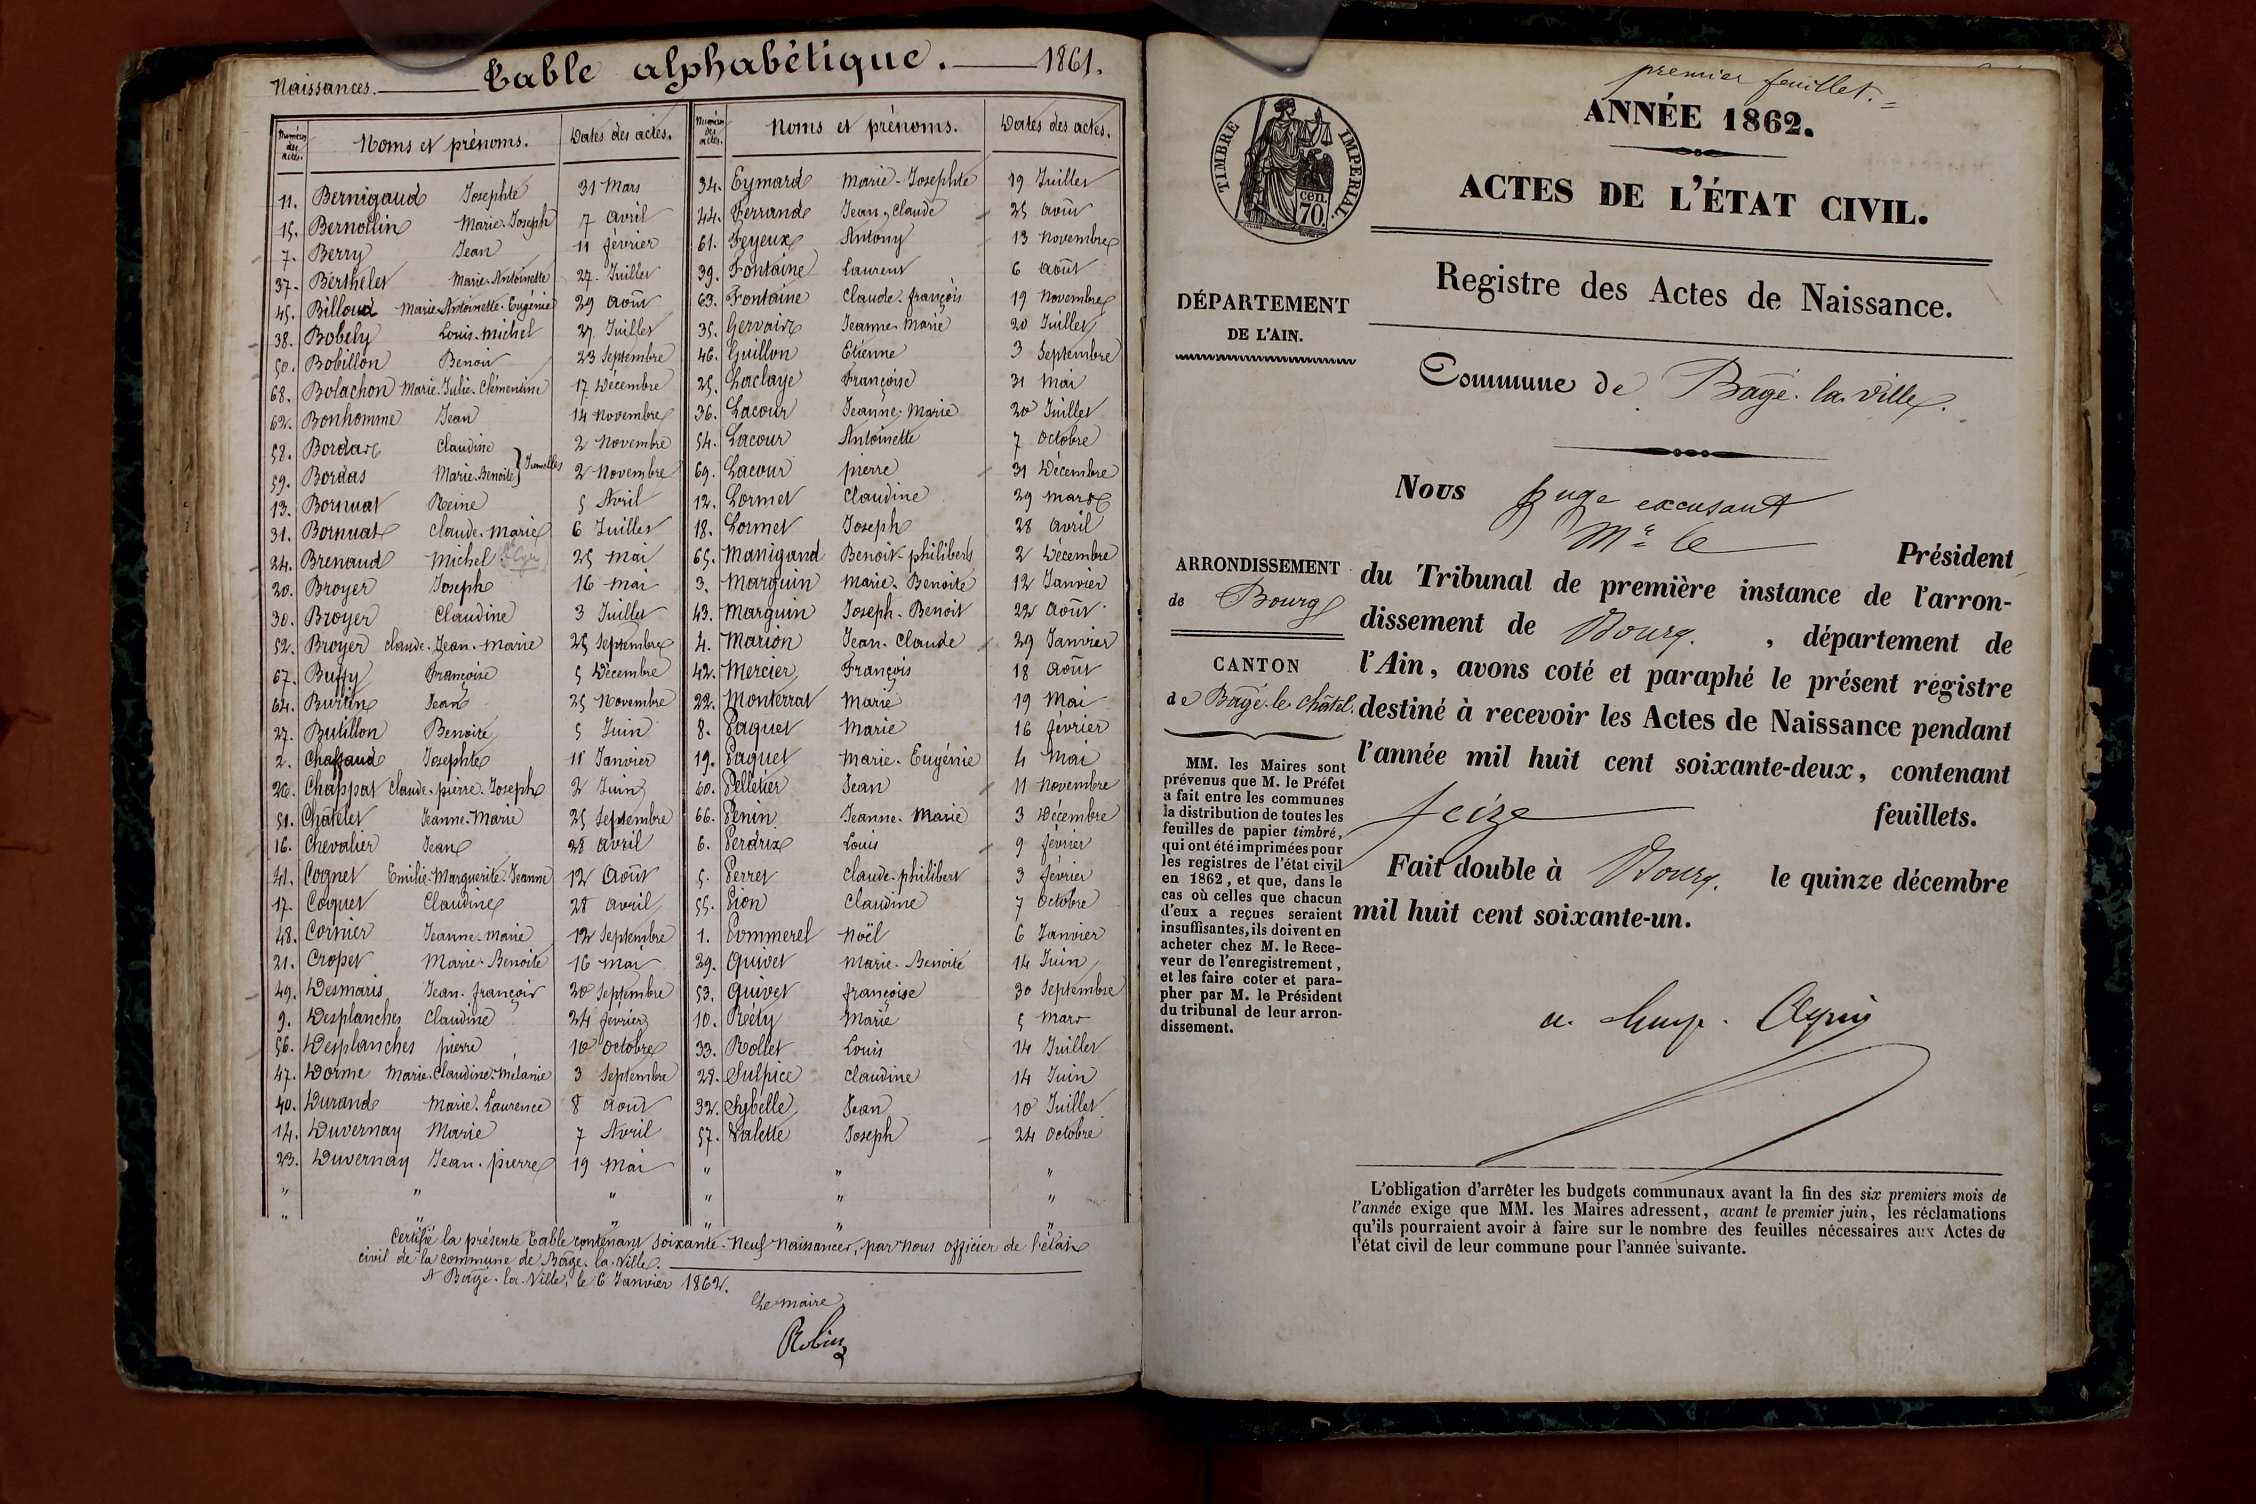 Naissances. Table alphabétique. 1861.
Numéros des actes. Noms et prénoms. Dates des actes.
11. Bernigaud Josephte 31 Mars
15. Bernollin Marie-Joseph 7 Avril
7. Berry Jean 11 février
37. Berthelet Marie-Antoinette 27 Juillet
45. Billoud Marie-Antoinette-Eugénie 29 Août
38. Bobély Louis-Michel 27 Juillet
50. Bobillon Benoit 23 Septembre
68. Bolachon Marie-Julie-Clémentine 17 Décembre
62. Bonhomme Jean 14 Novembre
58. Bordas Claudine 2 Novembre
59. Bordas Marie-Benoite } Jumelles 2 Novembre
13. Bornuat Reine 5 Avril
31. Bornuat Claude-Marie 6 Juillet
24. Brenaud Michel 25 Mai
20. Broyer Joseph 16 Mai
30. Broyer Claudine 3 Juillet
52. Broyer Claude-Jean-Marie 25 Septembre
67. Buffy Françoise 5 Décembre
64. Burtin Jean 25 Novembre
27. Butillon Benoite 5 Juin
2. Chaffaud Josephte 11 Janvier
26. Chappat Claude-pierre-Joseph 2 Juin
51. Châtelet Jeanne-Marie 25 Septembre
16. Chevalier Jean 28 avril
41. Cognet Emilie-Marguerite-Jeanne 12 Août
17. Coquet Claudine 28 avril
48. Cornier Jeanne-Marie 12 Septembre
21. Cropet Marie-Benoite 16 mai
49. Desmaris Jean-françois 20 Septembre
9. Desplanches Claudine 24 février
56. Desplanches pierre 10 Octobre
47. Dorme Marie-Claudine-Mélanie 3 Septembre
40. Durand Marie-Laurence 8 Août
14. Duvernay Marie 7 Avril
23. Duvernay Jean-pierre 19 Mai
" " "
" " "
Numéros des actes. Noms et prénoms. Dates des actes.
34. Eymard Marie-Josephte 19 Juillet
44. Ferrand Jean-Claude 25 Août
61. Feyeux Antony 13 Novembre
39. Fontaine Laurent 6 Août
63. Fontaine Claude-françois 19 Novembre
35. Gervais Jeanne-Marie 20 Juillet
46. Guillon Etienne 3 Septembre
25. Laclaye Françoise 31 Mai
36. Lacour Jeanne-Marie 20 Juillet
54. Lacour Antoinette 7 Octobre
69. Lacour pierre 31 Décembre
12. Lormet Claudine 29 Mars
18. Lormet Joseph 28 avril
65. Manigand Benoit-philibert 2 Décembre
3. Marguin Marie-Benoite 12 Janvier
43. Marguin Joseph-Benoit 22 Août
4. Marion Jean-Claude 29 Janvier
42. Mercier François 18 Août
22. Monterrat Marie 19 Mai
8. Paquet Marie 16 février
19. Paquet Marie-Eugénie 4 Mai
60. Pelletier Jean 11 Novembre
66. Penin Jeanne-Marie 3 Décembre
6. Perdrix Louis 9 février
5. Perret Claude-philibert 3 février
55. Pion Claudine 7 Octobre
1. Pommerel Noël 6 Janvier
29. Quivet Marie-Benoite 14 Juin
53. Quivet françoise 30 Septembre
10. Réty Marie 5 Mars
33. Rollet Louis 14 Juillet
28. Sulpice Claudine 14 Juin
32. Sybelle Jean 10 Juillet
57. Valette Joseph 24 Octobre
" " "
" " "
" " "
Certifié la présente Table contenant Soixante-Neuf Naissances, par nous officier de l'état
civil de la commune de Bâgé-la-Ville.
A Bâgé-la-Ville, le 6 Janvier 1862.
Le maire
Robin
premier feuillet.
TIMBRE IMPERIAL.
70 cen.
ANNÉE 1862.
ACTES DE L'ÉTAT CIVIL.
Registre des Actes de Naissance.
Commune de Bâgé-la-Ville.
DÉPARTEMENT
DE L'AIN.
ARRONDISSEMENT
de Bourg
CANTON
de Bâgé-le-Châtel.
MM. les Maires sont
prévenus que M. le Préfet
a fait entre les communes
la distribution de toutes les
feuilles de papier timbré,
qui ont été imprimées pour
les registres de l'état civil
en 1862, et que, dans le
cas où celles que chacun
d'eux a reçues seraient
insuffisantes, ils doivent en
acheter chez M. le Rece-
veur de l'enregistrement,
et les faire coter et para-
pher par M. le Président
du tribunal de leur arron-
dissement.
Nous Juge excusant
Mr le Président
du Tribunal de première instance de l'arron-
dissement de Bourg. , département de
l'Ain, avons coté et paraphé le présent régistre
destiné à recevoir les Actes de Naissance pendant
l'année mil huit cent soixante-deux, contenant
seize feuillets.
Fait double à Bourg. le quinze décembre
mil huit cent soixante-un.
L'obligation d'arrêter les budgets communaux avant la fin des six premiers mois de
l'année exige que MM. les Maires adressent, avant le premier juin, les réclamations
qu'ils pourraient avoir à faire sur le nombre des feuilles nécessaires aux Actes de
l'état civil de leur commune pour l'année suivante.